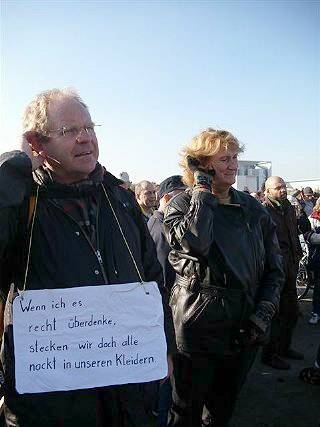 Wenn ich es
recht überdenke,
stecken wir doch alle
nackt in unseren Kleidern.